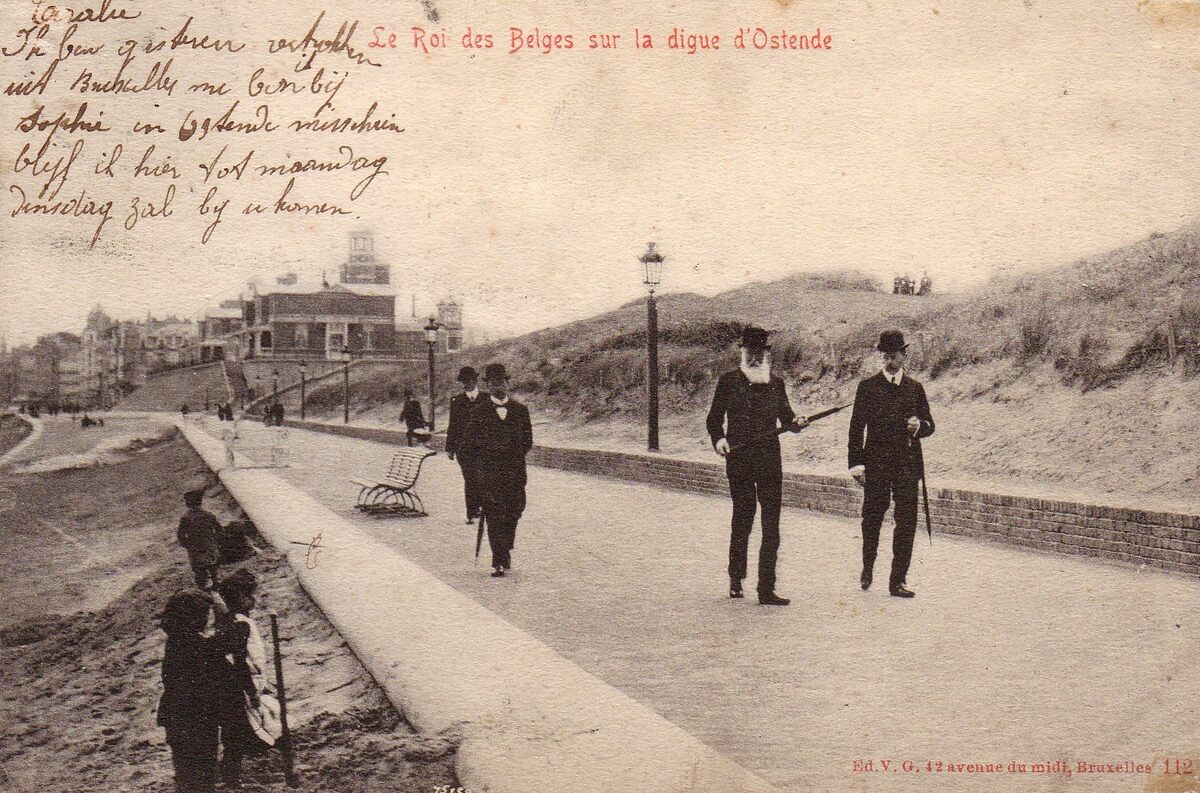 Ik ben gisteren vertrokken
Le Roi des Belges sur la digue d'Ostende
uit Bruxelles me ben bij
Sophie in Ostende misschien
blijf ik hier tot maandag
dinsdag zal bij u komen.
Ed. V. G. 42 avenue du midi, Bruxelles 112